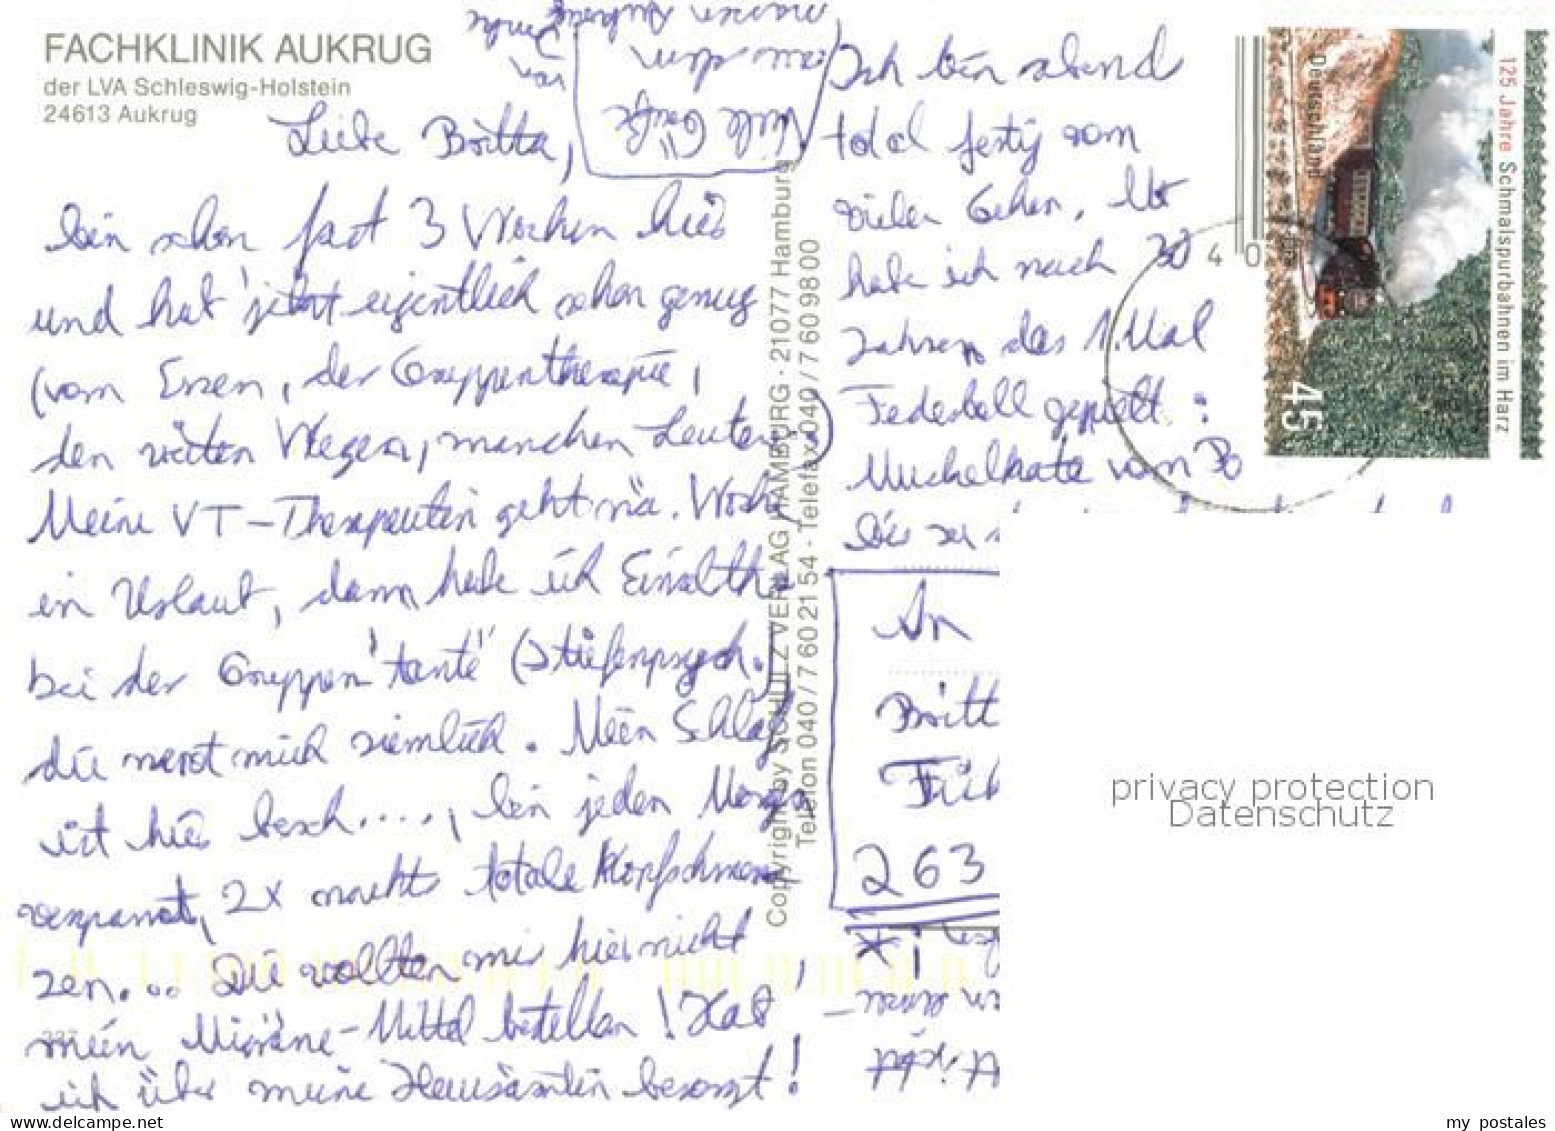 FACHKLINIK AUKRUG
der LVA Schleswig-Holstein
24613 Aukrug
Liebe Britta,
bin schon fast 3 Wochen hier
und hab' jetzt eigentlich schon genug
(vom Essen, der Gruppentherapie,
den weiten Wegen, manchen Leuten
Meine VT-Therapeutin geht nä. Woche
in Urlaub, dann habe ich Einzelth.
bei der Gruppen"tante" (Stiefenpsych.)
die nervt mich ziemlich. Mein Schlaf
ist hier besch...., bin jeden Morgen
verspannt, 2x nachts totale Kopfschmer-
zen... Die wollten mir hier nicht
mein Migräne-Mittel bestellen! Hab'
ich über meine Hausärztin besorgt!
Viele Grüße
aus dem
nassen Aukrug
von
Ich bin abend
total fertig vom
vielen Gehen. Us
habe ich nach 30
Jahren das 1. Mal
Federball gespielt:
Muskelkater vom Po
bis zu
An
Britt
263
Copyright by SCHULZ VERLAG HAMBURG · 21077 Hamburg
Telefon 040 / 7 60 21 54 · Telefax 040 / 7 60 98 00
Deutschland
125 Jahre Schmalspurbahnen im Harz
45
40
227
privacy protection
Datenschutz
www.delcampe.net
my_postales